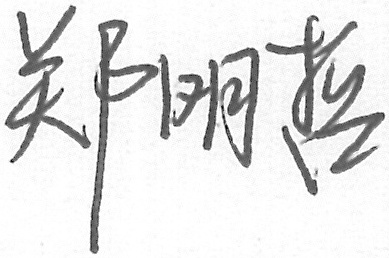 郑明哲